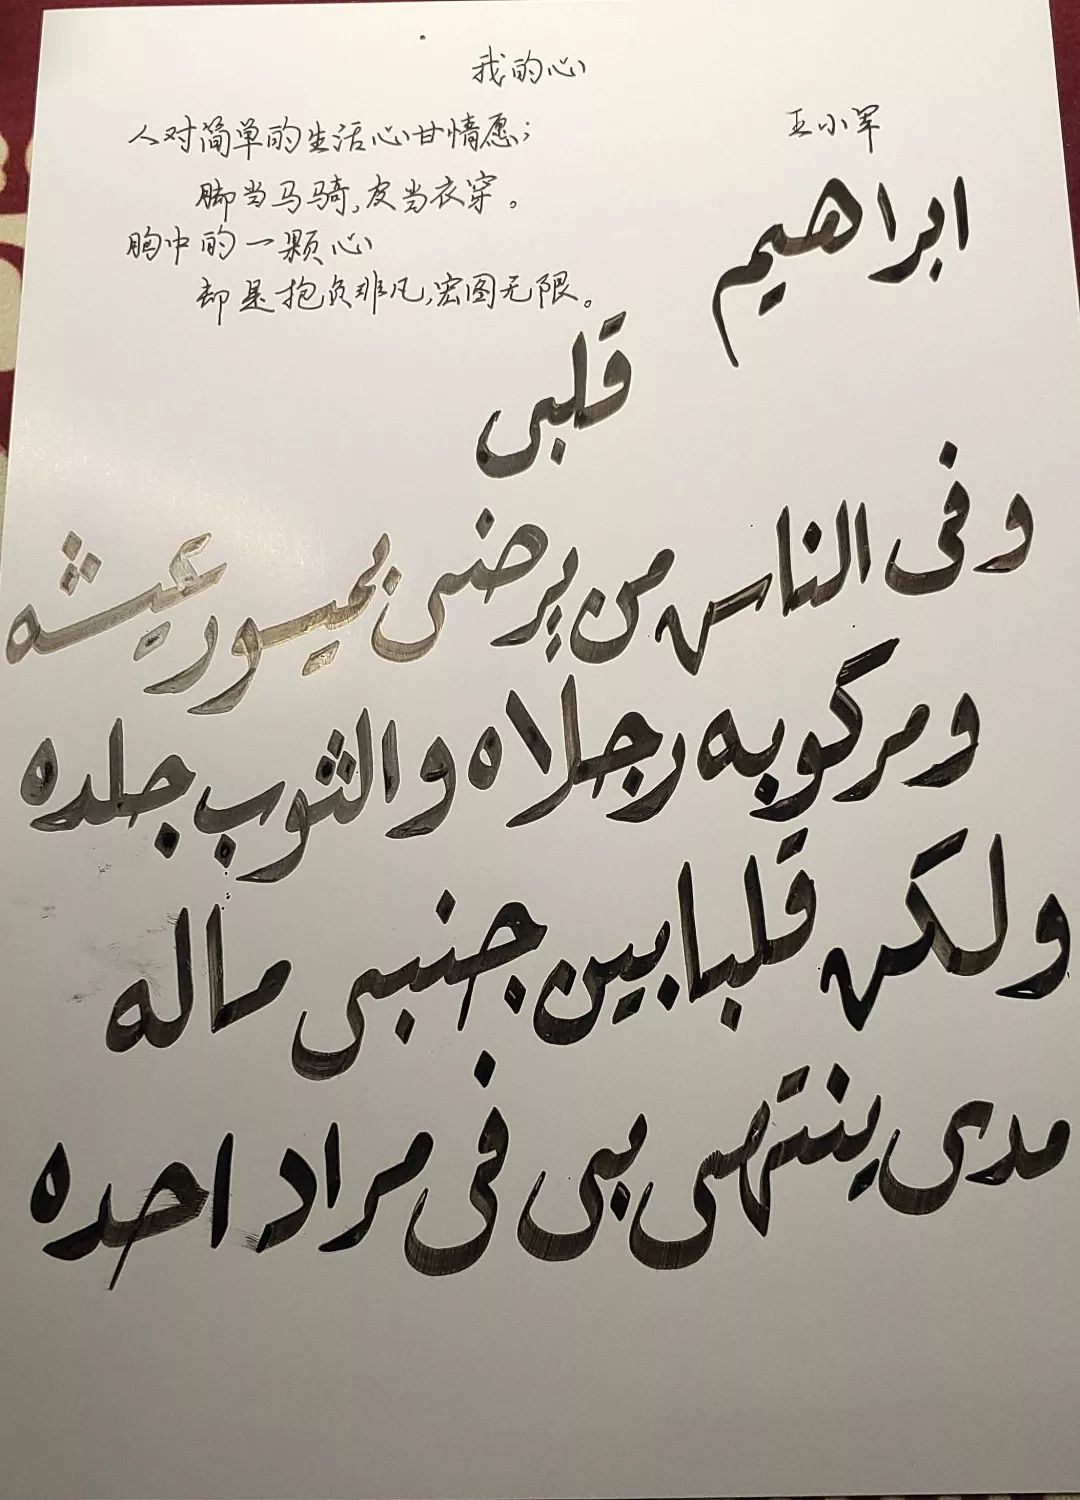 我的心
王小军
人对简单的生活心甘情愿；
脚当马骑，皮当衣穿。
胸中的一颗心
却是抱负非凡，宏图无限。
ابراهيم
قلبى
وفى الناس من يرضى بميسور عيشه
ومركوبه رجلاه والثوب جلده
ولكن قلبا بين جنبى ماله
مدى ينتهى بى فى مراد احده